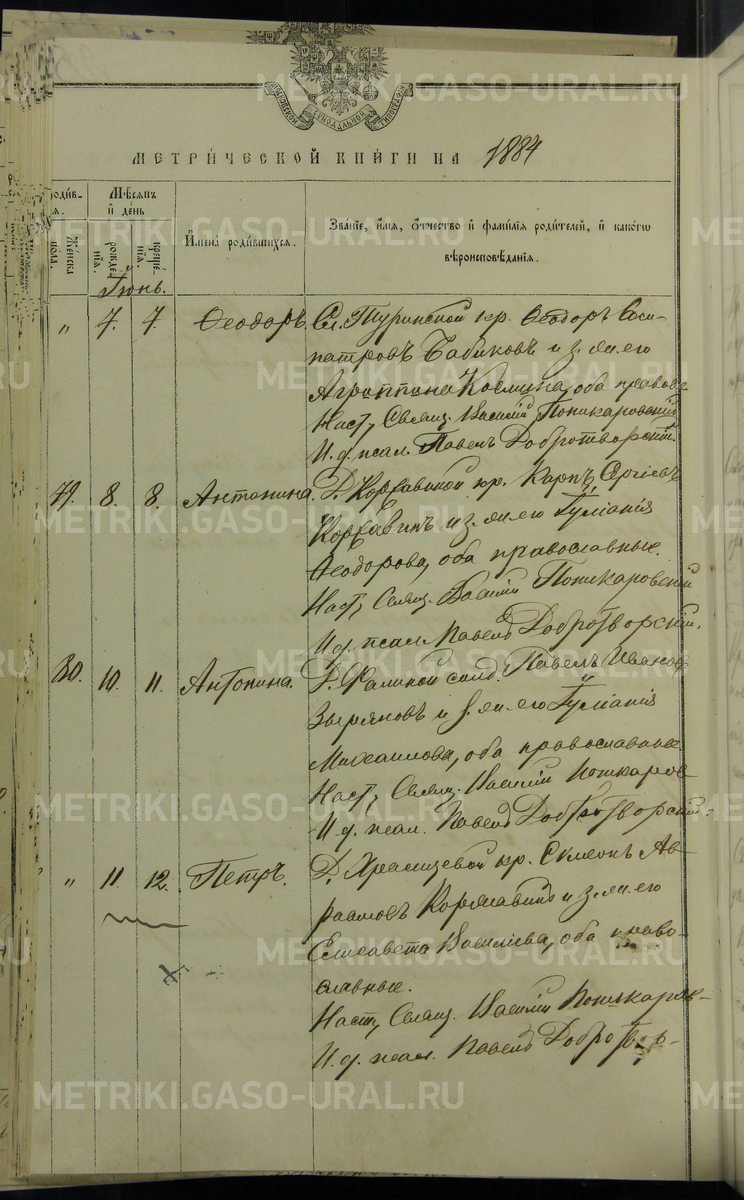 МЕТРИ́ЧЕСКОЙ КНИ́ГИ НА 1884
Мѣсяцъ и де́нь
Же́нска пола.
рожде́нїя.
креще́нїя.
Имена̀ роди́вшихся.
Зва́нїе, и́мя, о́тчество и фами́лїя роди́телей, и како́гѡ вѣроисповѣ́данїя.
Іюнь.
„ 7. 7. Ѳеодоръ. Сл. Туринской кр. Ѳеодоръ Соси-
патровъ Бабиковъ и з. жена его
Агриппина Космина, оба правос.
Наст. Свящ. Василій Поникаровскій
И. д. псал. Павелъ Добротворскій.
8. 8. Антонина. Д. Коржавиной кр. Карпъ Сергіевъ
Коржавинъ и з. жен. его Іуліанія
Ѳеодорова, оба православные.
Наст. Свящ. Василій Поникаровскій
И. д. псал. Павелъ Добротворскій.
30. 10. 11. Антонина. Д. Фалиной солд. Павелъ Иванов
Зыряновъ и з. жен. его Іуліанія
Михаилова, оба православные
Наст. Свящ. Василій Поникаров
И. д. псал. Павелъ Добротворскій.
„ 11 12. Петръ. Д. Храмцевой кр. Симеонъ Ав-
раамовъ Коржавинъ и з. жен. его
Елисавета Василіева, оба право-
славные.
Наст. Свящ. Василій Поникаров-
И. д. псал. Павелъ Добротвор-
METRIKI.GASO-URAL.RU